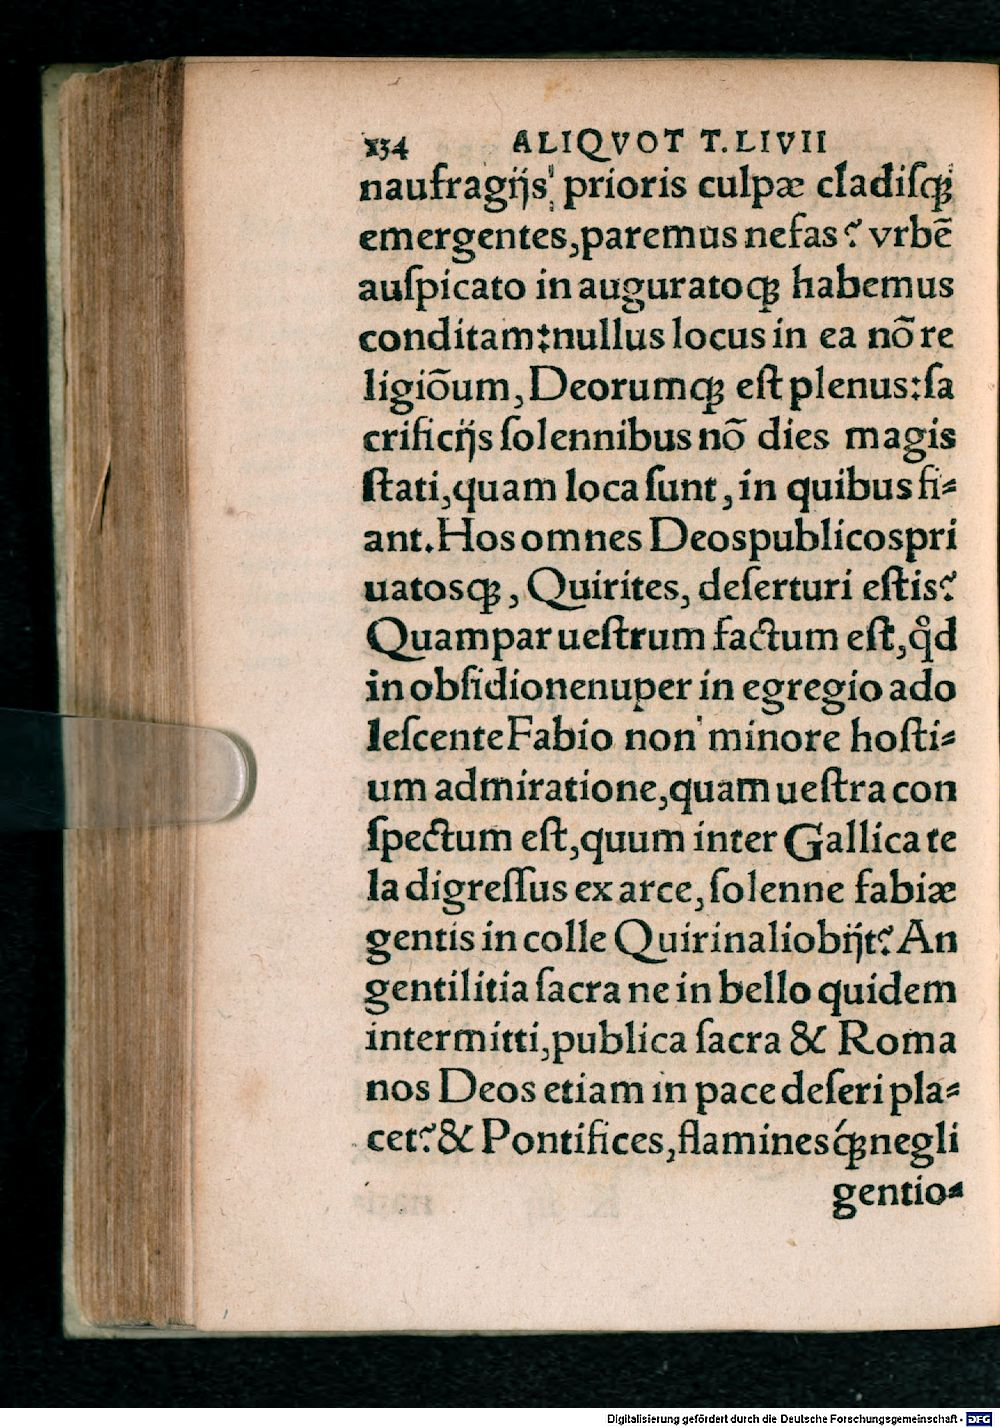 154 ALIQVOT T. LIVII
naufragijs prioris culpæ cladiſqꝫ
emergentes, paremus nefas? vrbẽ
auſpicato inauguratoqꝫ habemus
conditam: nullus locus in ea nõ re
ligiõum, Deorumqꝫ eſt plenus: ſa
crificijs ſolennibus nõ dies magis
ſtati, quam loca ſunt, in quibus fi⸗
ant. Hos omnes Deos publicos pri
uatosqꝫ, Quirites, deſerturi eſtis?
Quam par ueſtrum factum eſt, qͦd
in obſidione nuper in egregio ado
leſcente Fabio non minore hoſti⸗
um admiratione, quam ueſtra con
ſpectum eſt, quum inter Gallica te
la digreſſus ex arce, ſolenne fabiæ
gentis in colle Quirinali obijt? An
gentilitia ſacra ne in bello quidem
intermitti, publica ſacra & Roma
nos Deos etiam in pace deſeri pla⸗
cet? & Pontifices, flaminesq́ꝫ negli
gentio⸗
Digitalisierung gefördert durch die Deutsche Forschungsgemeinschaft - DFG